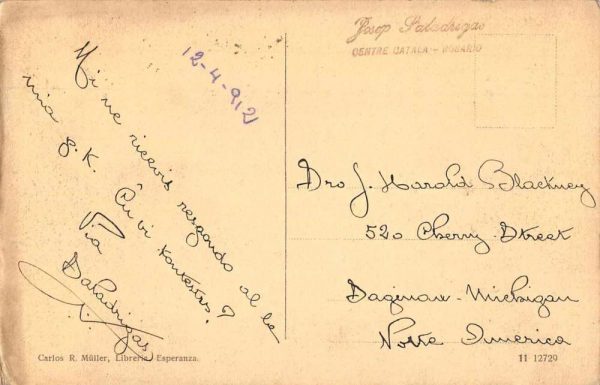 12-4-912
Mi ne ricevis respondo al la
mia p. K. Ĉu vi kontestas?
Via
Saladrigas
Carlos R. Müller, Librería Esperanza.
Josep Saladrigas
CENTRE CATALÀ - ROSARIO
Dro J. Harold Blackney
520 Cherry-Street
Saginaw-Michigan
Norte America
11 12729